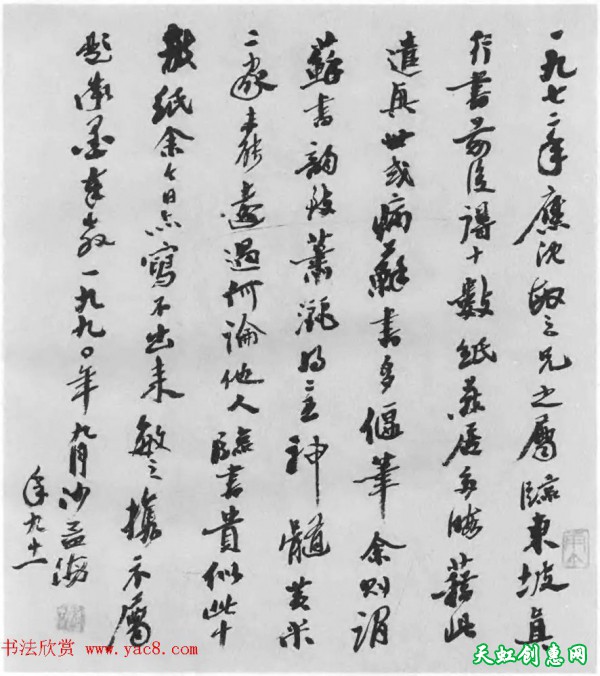 一九七二年應沈敏之兄之屬臨東坡真
行書前後得十數紙蟄居多暇藉此
遣興世或病蘇書多偃筆余則謂
蘇書韻致蕭灑得二王神髓黃米
二家未能遠過何論他人臨書貴似此十
數紙余今日亦寫不出來敏之携示屬
題漸墨奉教一九九〇年九月沙孟海
年九十一
书法欣赏 www.yac8.com
天虹创意网